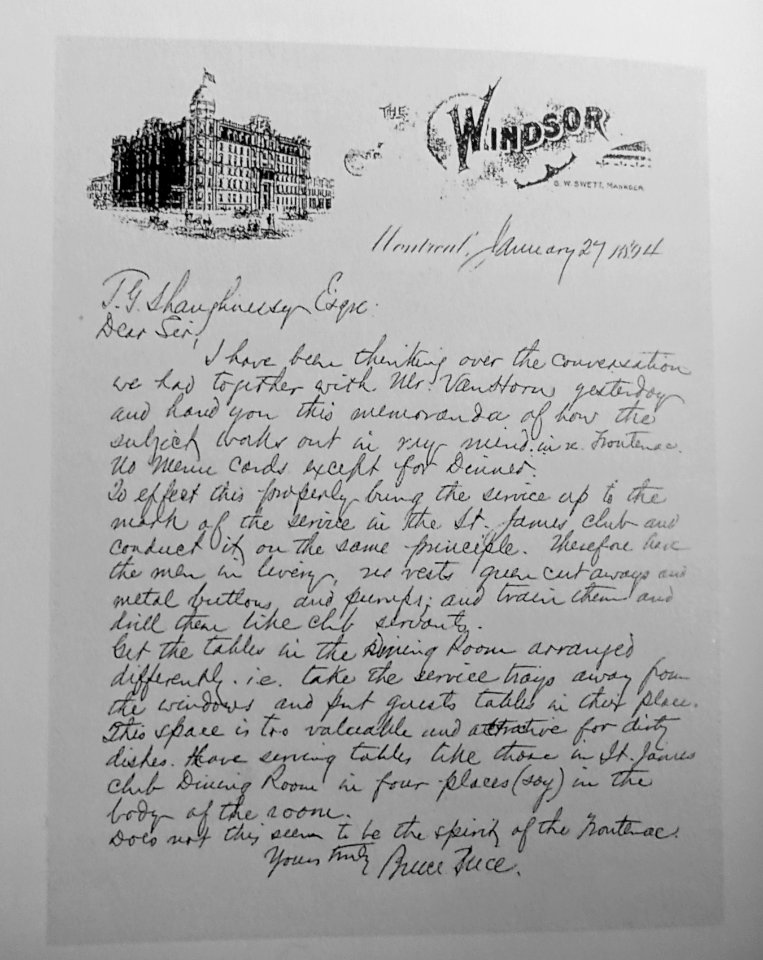 THE
WINDSOR
S. W. SWETT, MANAGER
Montreal, January 27 1894
T. G. Shaughnessy Esqre.
Dear Sir,
I have been thinking over the conversation
we had together with Mr. Van Horne yesterday
and hand you this memoranda of how the
subject works out in my mind. in re Frontenac.
No Menu Cards except for Dinner.
To effect this properly bring the service up to the
mark of the service in the St. James Club and
conduct it on the same principle. Therefore have
the men in livery, vests green cut aways and
metal buttons and pumps; and train them and
drill them like club servants.
Get the tables in the Dining Room arranged
differently. i.e. take the service trays away from
the windows and put guests tables in their place.
This space is too valuable and attrative for dirty
dishes. Have serving tables like those in St. James
Club Dining Room in four places (say) in the
body of the room.
Does not this seem to be the spirit of the Frontenac.
Yours truly Bruce Price.